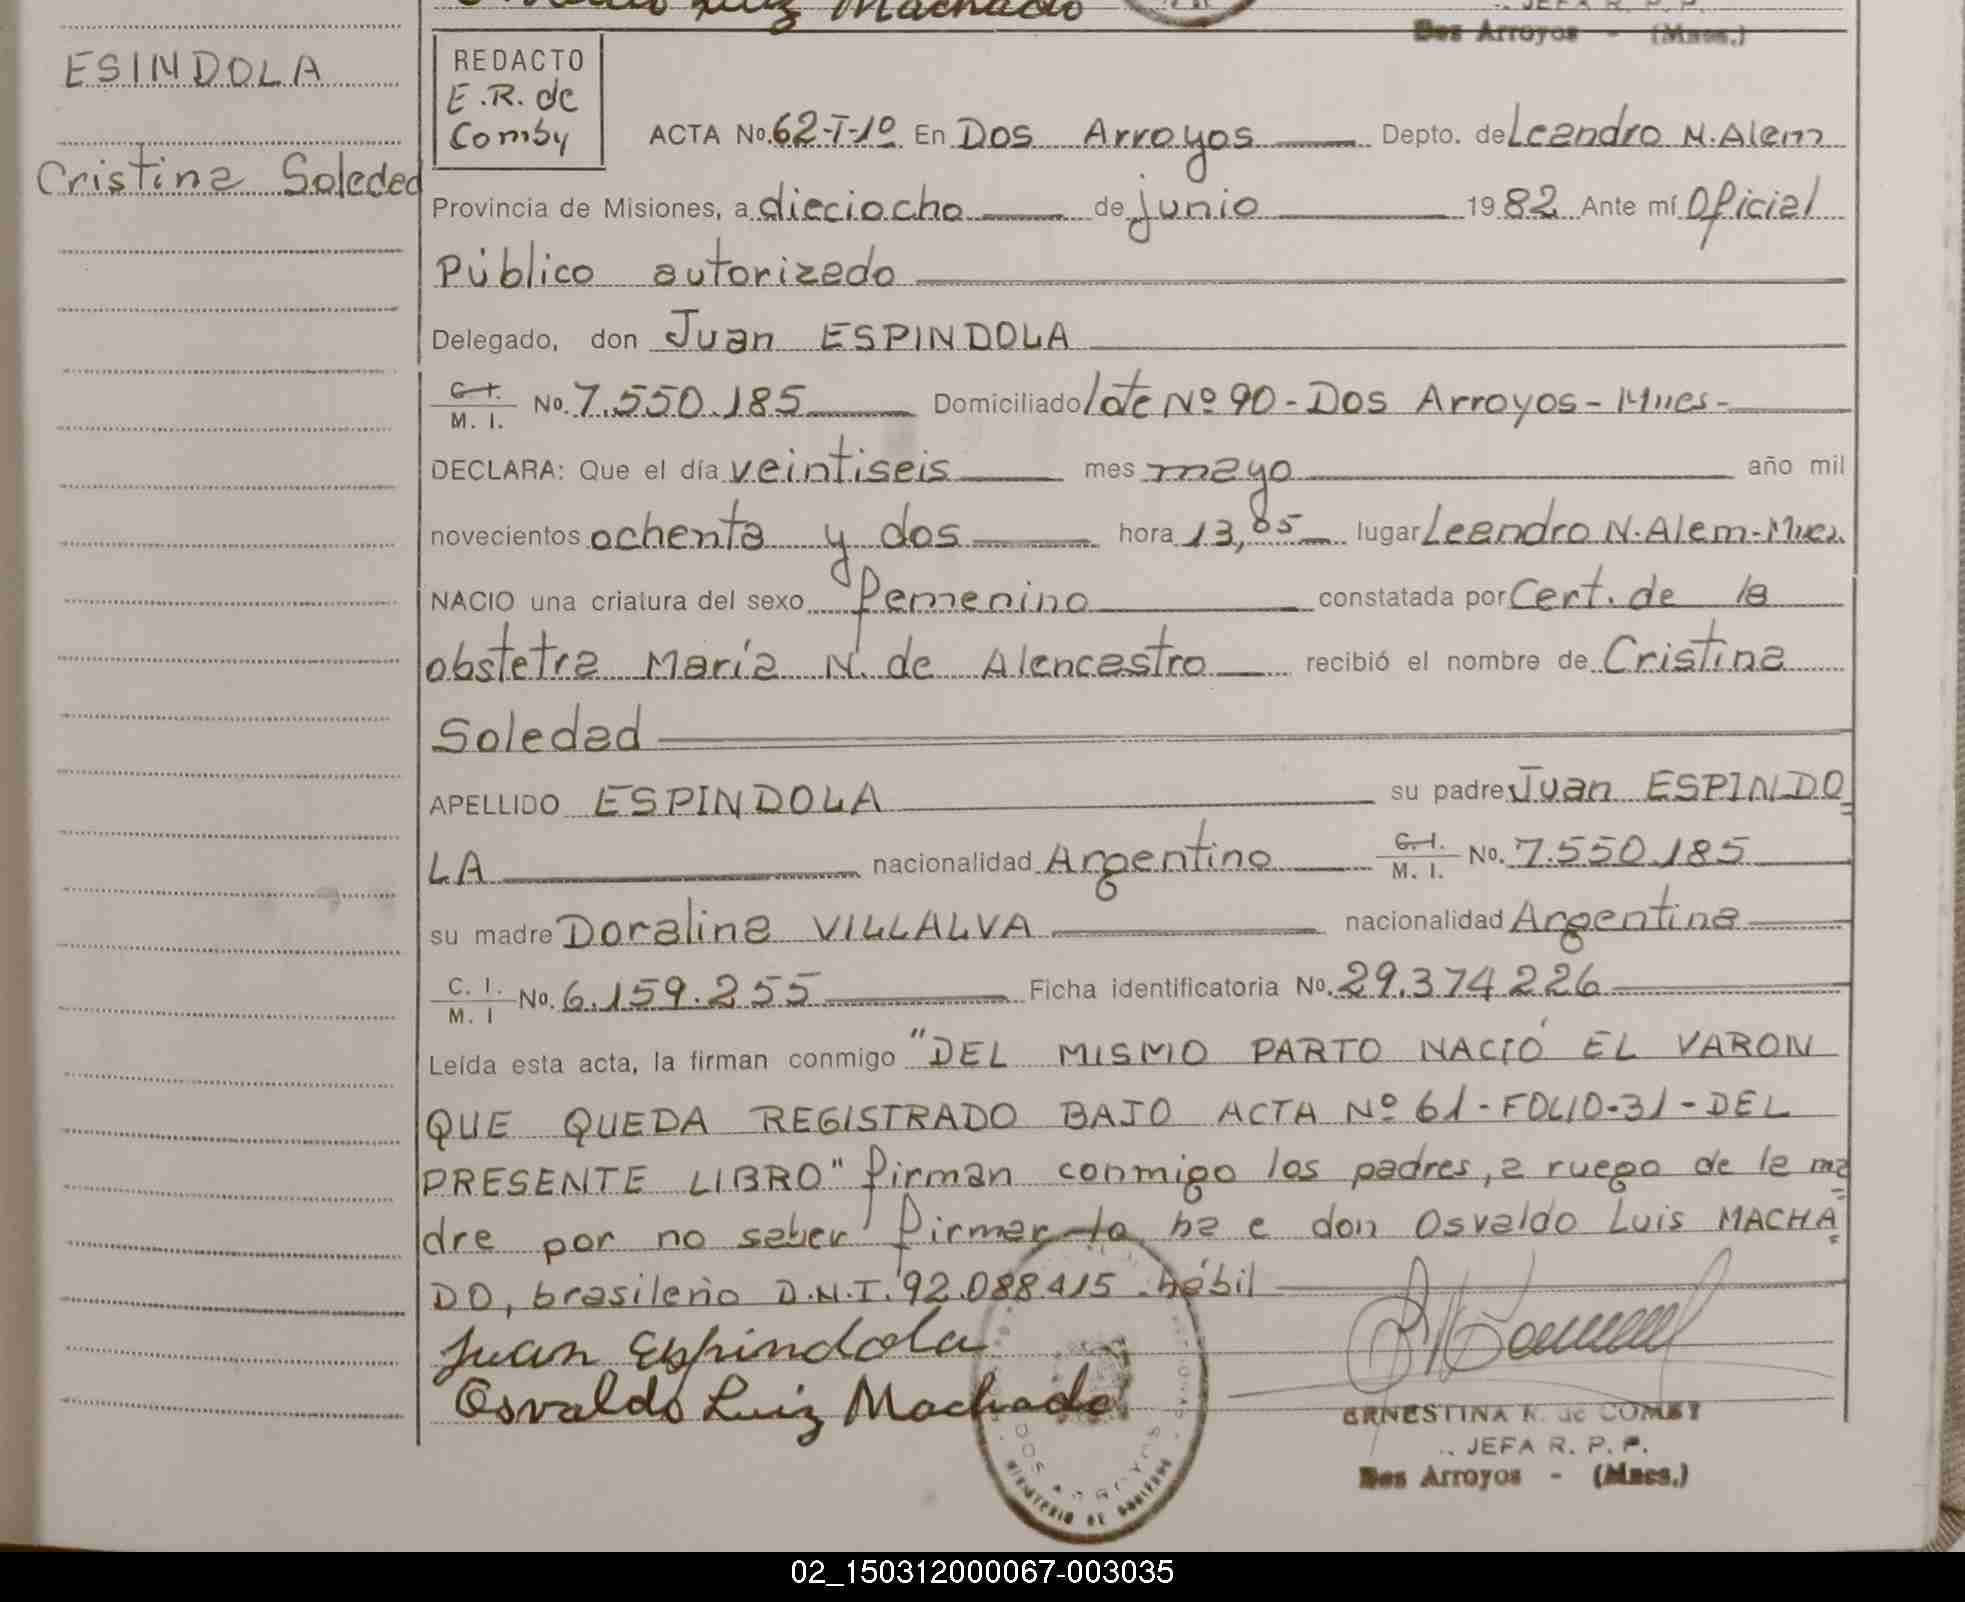 Luiz Machado
JEFA R. P. P.
Dos Arroyos - (Mnes.)
ESINDOLA
Cristina Soledad
REDACTO
E.R. de
Comby
ACTA No. 62-T-1º En Dos Arroyos Depto. de Leandro N. Alem
Provincia de Misiones, a dieciocho de junio 1982 Ante mí Oficial
Público autorizado
Delegado, don Juan ESPINDOLA
C.I. M. I. No. 7.550.185 Domiciliado lote Nº 90 - Dos Arroyos - Mnes -
DECLARA: Que el día veintiseis mes mayo año mil
novecientos ochenta y dos hora 13,05 lugar Leandro N. Alem - Mnes.
NACIO una criatura del sexo femenino constatada por Cert. de la
obstetra María N. de Alencastro recibió el nombre de Cristina
Soledad
APELLIDO ESPINDOLA su padre Juan ESPINDO=
LA nacionalidad Argentino C.I. M. I. No. 7.550.185
su madre Doralina VILLALVA nacionalidad Argentina
C. I. M. I No. 6.159.255 Ficha identificatoria No. 29.374.226
Leída esta acta, la firman conmigo "DEL MISMO PARTO NACIÓ EL VARON
QUE QUEDA REGISTRADO BAJO ACTA Nº 61 - FOLIO - 31 - DEL
PRESENTE LIBRO" firman conmigo los padres, a ruego de la ma=
dre por no saber firmar lo hace don Osvaldo Luis MACHA=
DO, brasileño D.N.I. 92.088.415 hábil
Juan Espindola
Osvaldo Luiz Machado
DOS ARROYOS
MINISTERIO DE GOBIERNO
ERNESTINA R. de COMBY
JEFA R. P. P.
Dos Arroyos - (Mnes.)
02_150312000067-003035